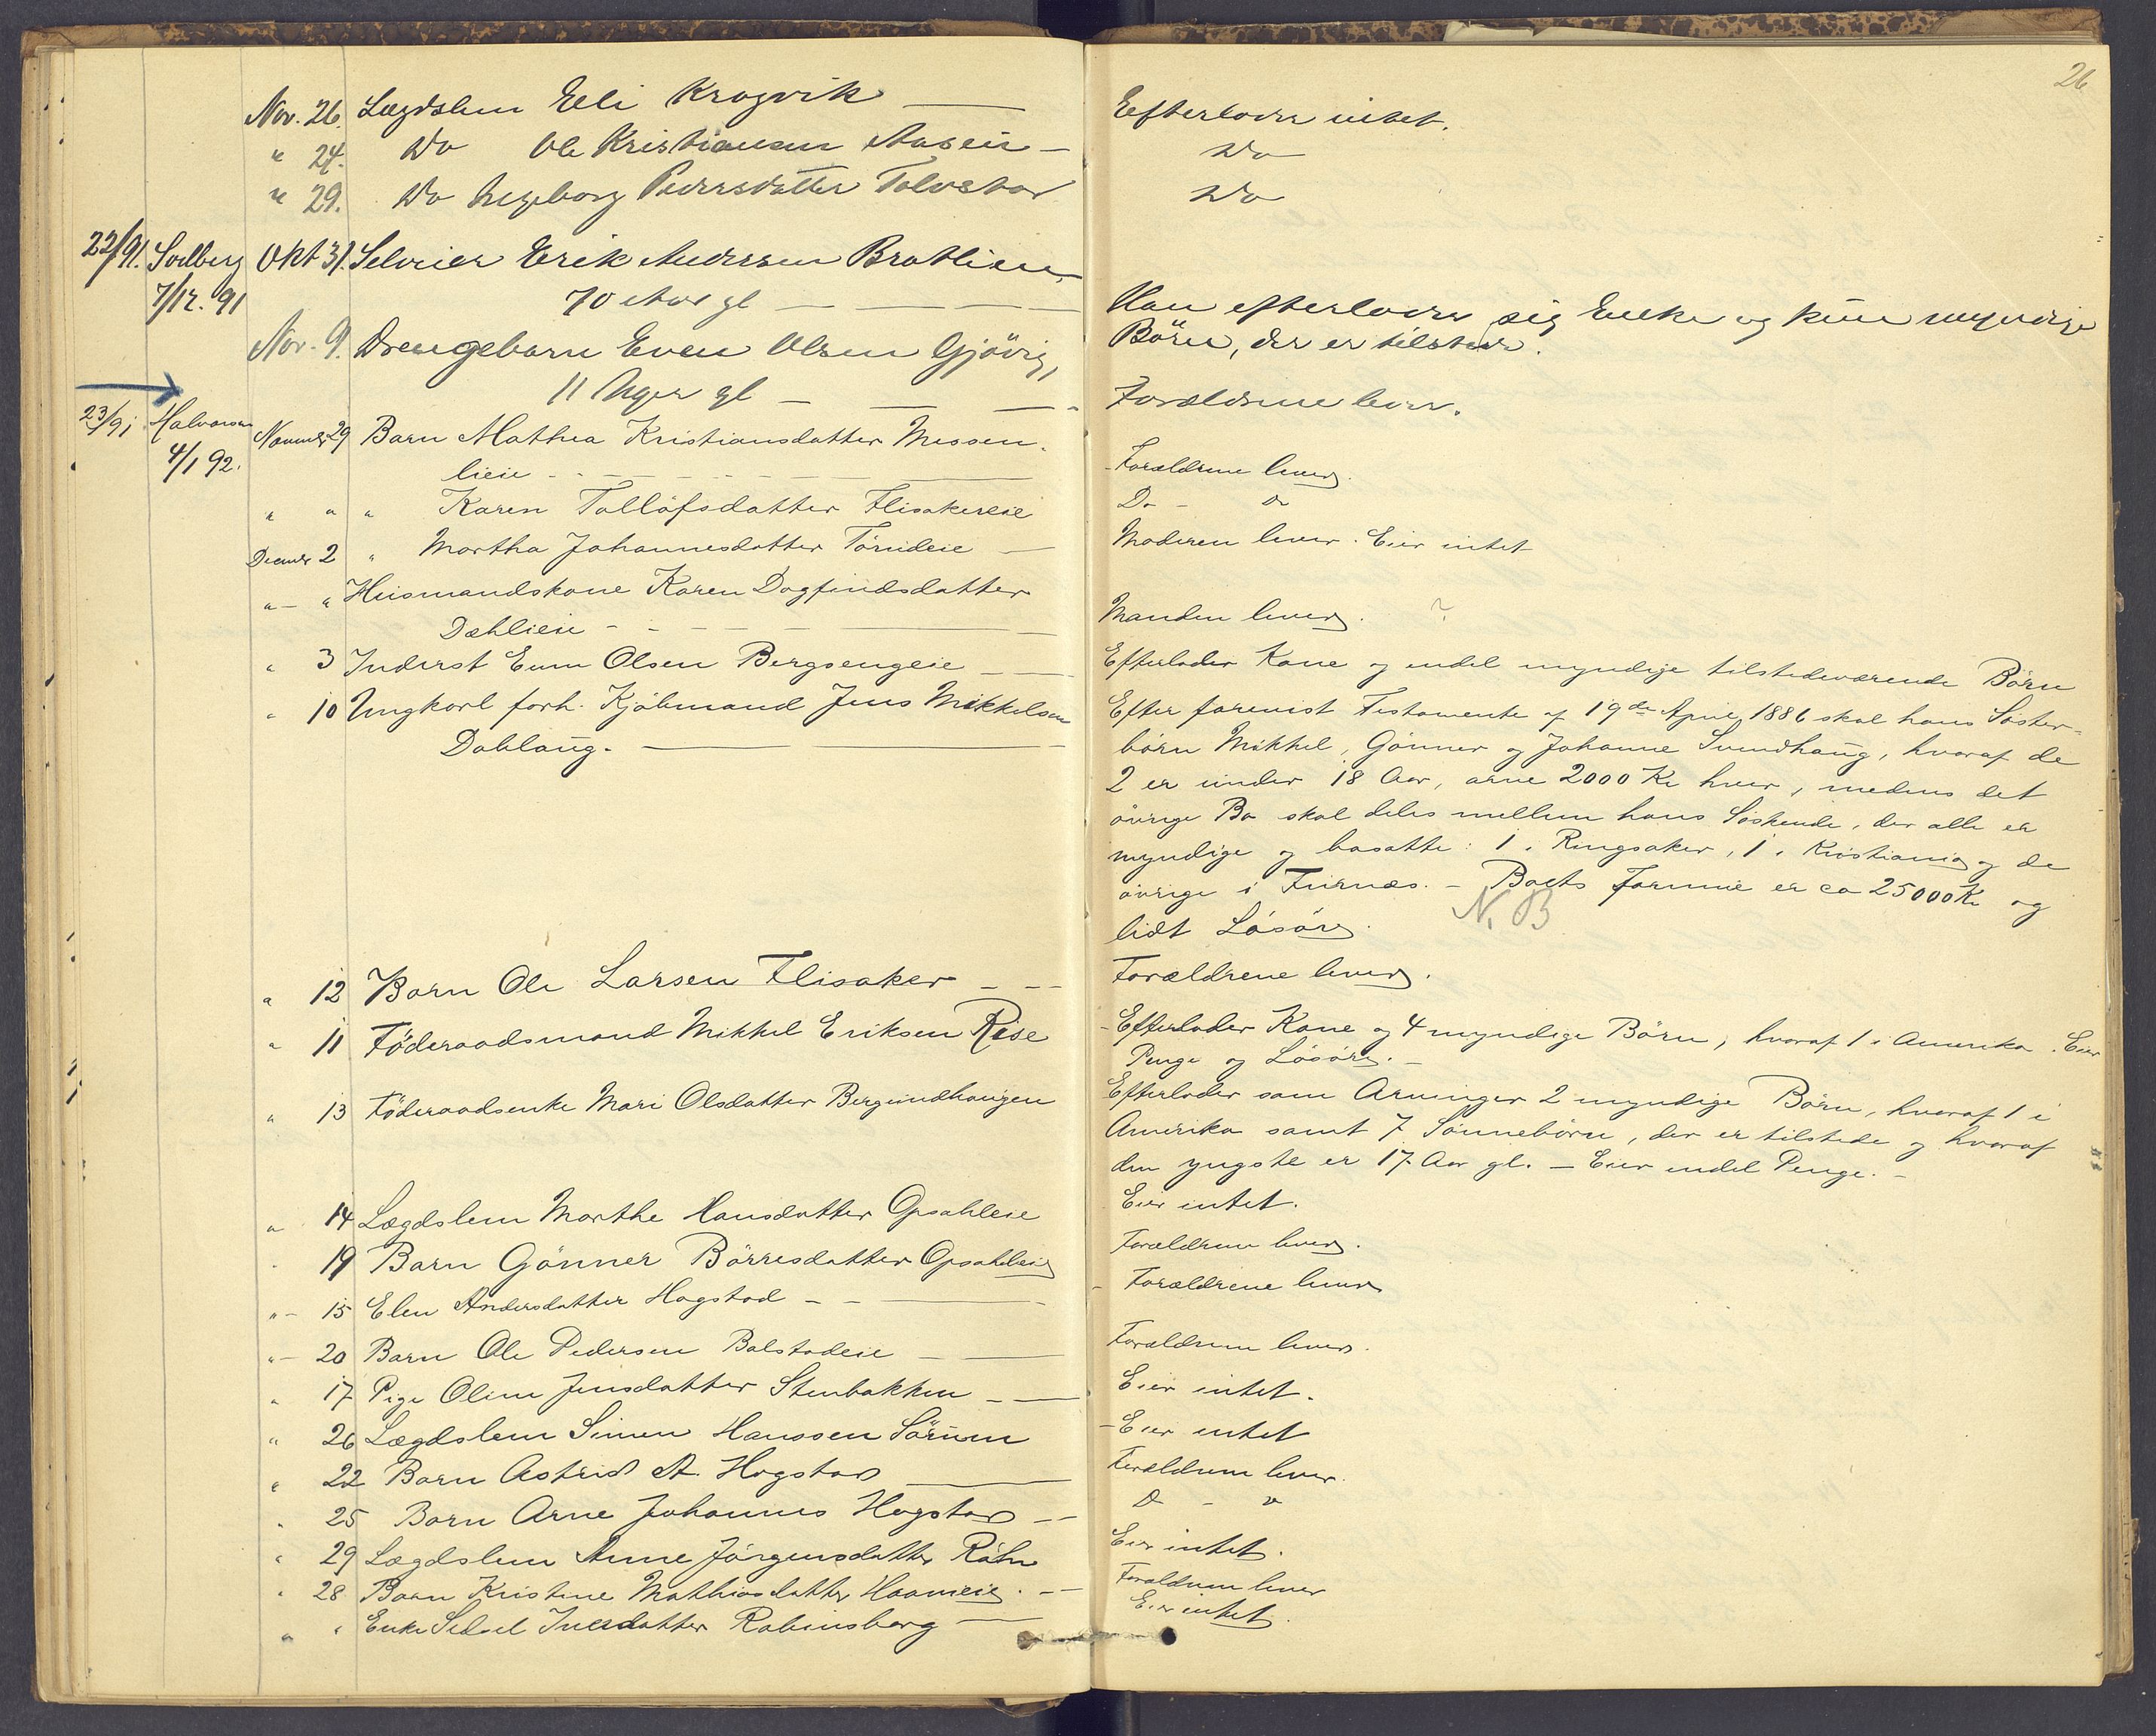 26
Nov. 26. Lægdslem Eli Kragvik — Efterlader intet.
" 24. Do Ole Kristiansen Aaseie — Do
" 29. Do Ingeborg Pedersdatter Tolvstad Do
22/91. Solberg Okt 31. Selveier Erik Andersen Bratlien,
7/12. 91 70 Aar gl — — — Han efterlader sig Enke og kun myndige
Børn, der er tilstede.
Nov. 9. Drengebarn Even Olsen Gjøvig,
11 Uger gl — — — Forældrene lever.
23/91 Halvorsen Novembr 29 Barn Mathea Kristiansdatter Messen-
4/1 92. lieie - - - Forældrene lever.
" " " Karen Tollöfsdatter Flisakereie D. - o
Decembr 2 " Martha Johannesdatter Törudeie — Moderen lever. Eier intet
" - " Husmandskone Karen Dagfindsdatter
Dæhlieie - - - Manden lever. ?
" 3 Inderst Even Olsen Bergsengeie — Efterlader Kone og endel myndige tilstedeværende Börn
" 10 Ungkarl forh. Kjöbmand Jens Mikkelsen Efter forevist Testamente af 19de April 1886 skal hans Söster-
Dahlaug. — börn Mikkel, Gönner og Johanne Svendhaug, hvoraf de
2 er under 18 Aar, arve 2000 Kr hver, medens det
övrige Bo skal deles mellem hans Söskende, der alle er
myndige og bosatte: 1 i Ringsaker, 1 i Kristiania og de
övrige i Furnæs. - Boets Formue er ca 25000 Kr og
lidt Lösöre. N. B
" 12 Barn Ole Larsen Flisaker - - - Forældrene lever.
" 11 Föderaadsmand Mikkel Eriksen Rise - Efterlader Kone og 4 myndige Börn, hvoraf 1 i Amerika. Eier
Penge og Lösöre. -
" 13 Föderaadsenke Mari Olsdatter Bergundhaugen Efterlader som Arvinger 2 myndige Börn, hvoraf 1 i
Amerika samt 7 Sönnebörn, der er tilstede og hvoraf
den yngste er 17 Aar gl. — Eier endel Penge. -
" 14 Lægdslem Marthe Hansdatter Opsahleie Eier intet.
" 19 Barn Gönner Börresdatter Opsahleie Forældrene lever.
" - 15 Elen Andersdatter Hagstad - - — - Forældrene lever
" - 20 Barn Ole Pedersen Balstadeie — Forældrene lever.
" 17 Pige Oline Jensdatter Stenbakken - — Eier intet.
" 26 Lægdslem Simen Hanssen Sörum - Eier intet
" 22 Barn Astrid A. Hagstad — Forældrene lever.
" 25 Barn Arne Johannes Hagstad - - D - o
" 29 Lægdslem Anne Jörgensdatter Eier intet.
" 28 Barn Kristine Mathiasdatter - — Forældrene lever
" " Enke Sidsel Iversdatter Robinsberg — Eier intet.